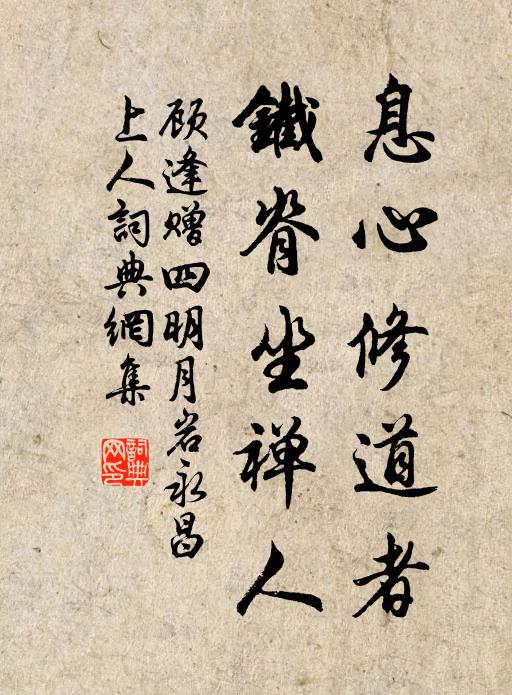 息心修道者
鐵脊坐禅人
顾逢赠四明月岩永昌
上人詞典網集
詞典网印